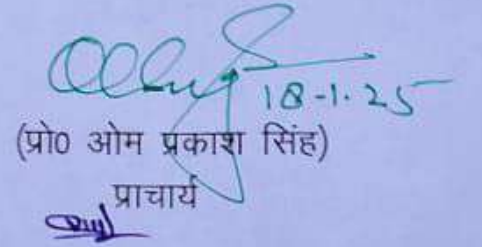 18-1-25
(प्रो0 ओम प्रकाश सिंह)
प्राचार्य